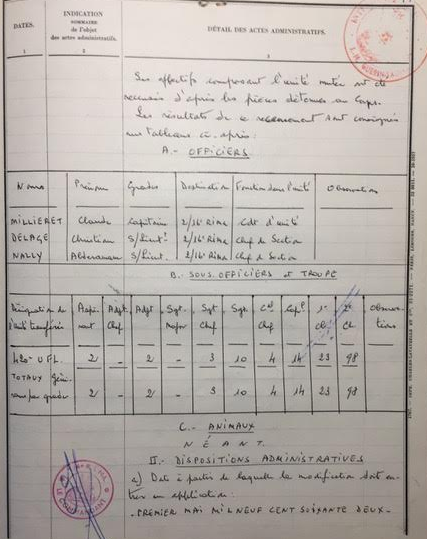 DATES.
INDICATION
SOMMAIRE
de l'objet
des actes administratifs.
DÉTAIL DES ACTES ADMINISTRATIFS.
1
2
3
Les effectifs composant l'unité mutée ont été
recensés d'après les pièces détenues au Corps.
Les résultats de ce recensement sont consignés
aux tableaux ci-après:
A.- OFFICIERS
Noms Prénoms Grades Destination Fonction dans l'unité Observations
MILLIERET Claude Capitaine 2/16e Rima Cdt d'unité
DELAGE Christian S/Lieut. 2/16e Rima Chef de Section
NALLY S/Lieut. 2/16e Rima Chef de Section
B. SOUS-OFFICIERS et TROUPE
Désignation de l'unité transférée Adju- dant Adjt Chef Adjt Sgt Major Sgt Chef Sgt Cal Chef Capl 1e Cl 2e Cl Observa- tions
420e UFL 2 - 2 - 3 10 4 14 23 98
TOTAUX Géné-
raux par grades 2 - 2 - 3 10 4 14 23 98
C.- ANIMAUX
NÉANT.
II.- DISPOSITIONS ADMINISTRATIVES
a) Date à partir de laquelle la modification doit en-
trer en application:
- PREMIER MAI MIL NEUF CENT SOIXANTE DEUX -
LE COMMANDANT